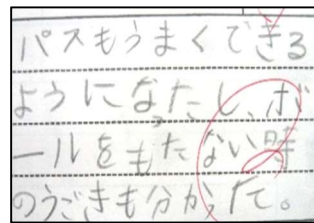 パスもうまくできる
ようになったし、ボ
ールをもたない時
のうごきも分かった。